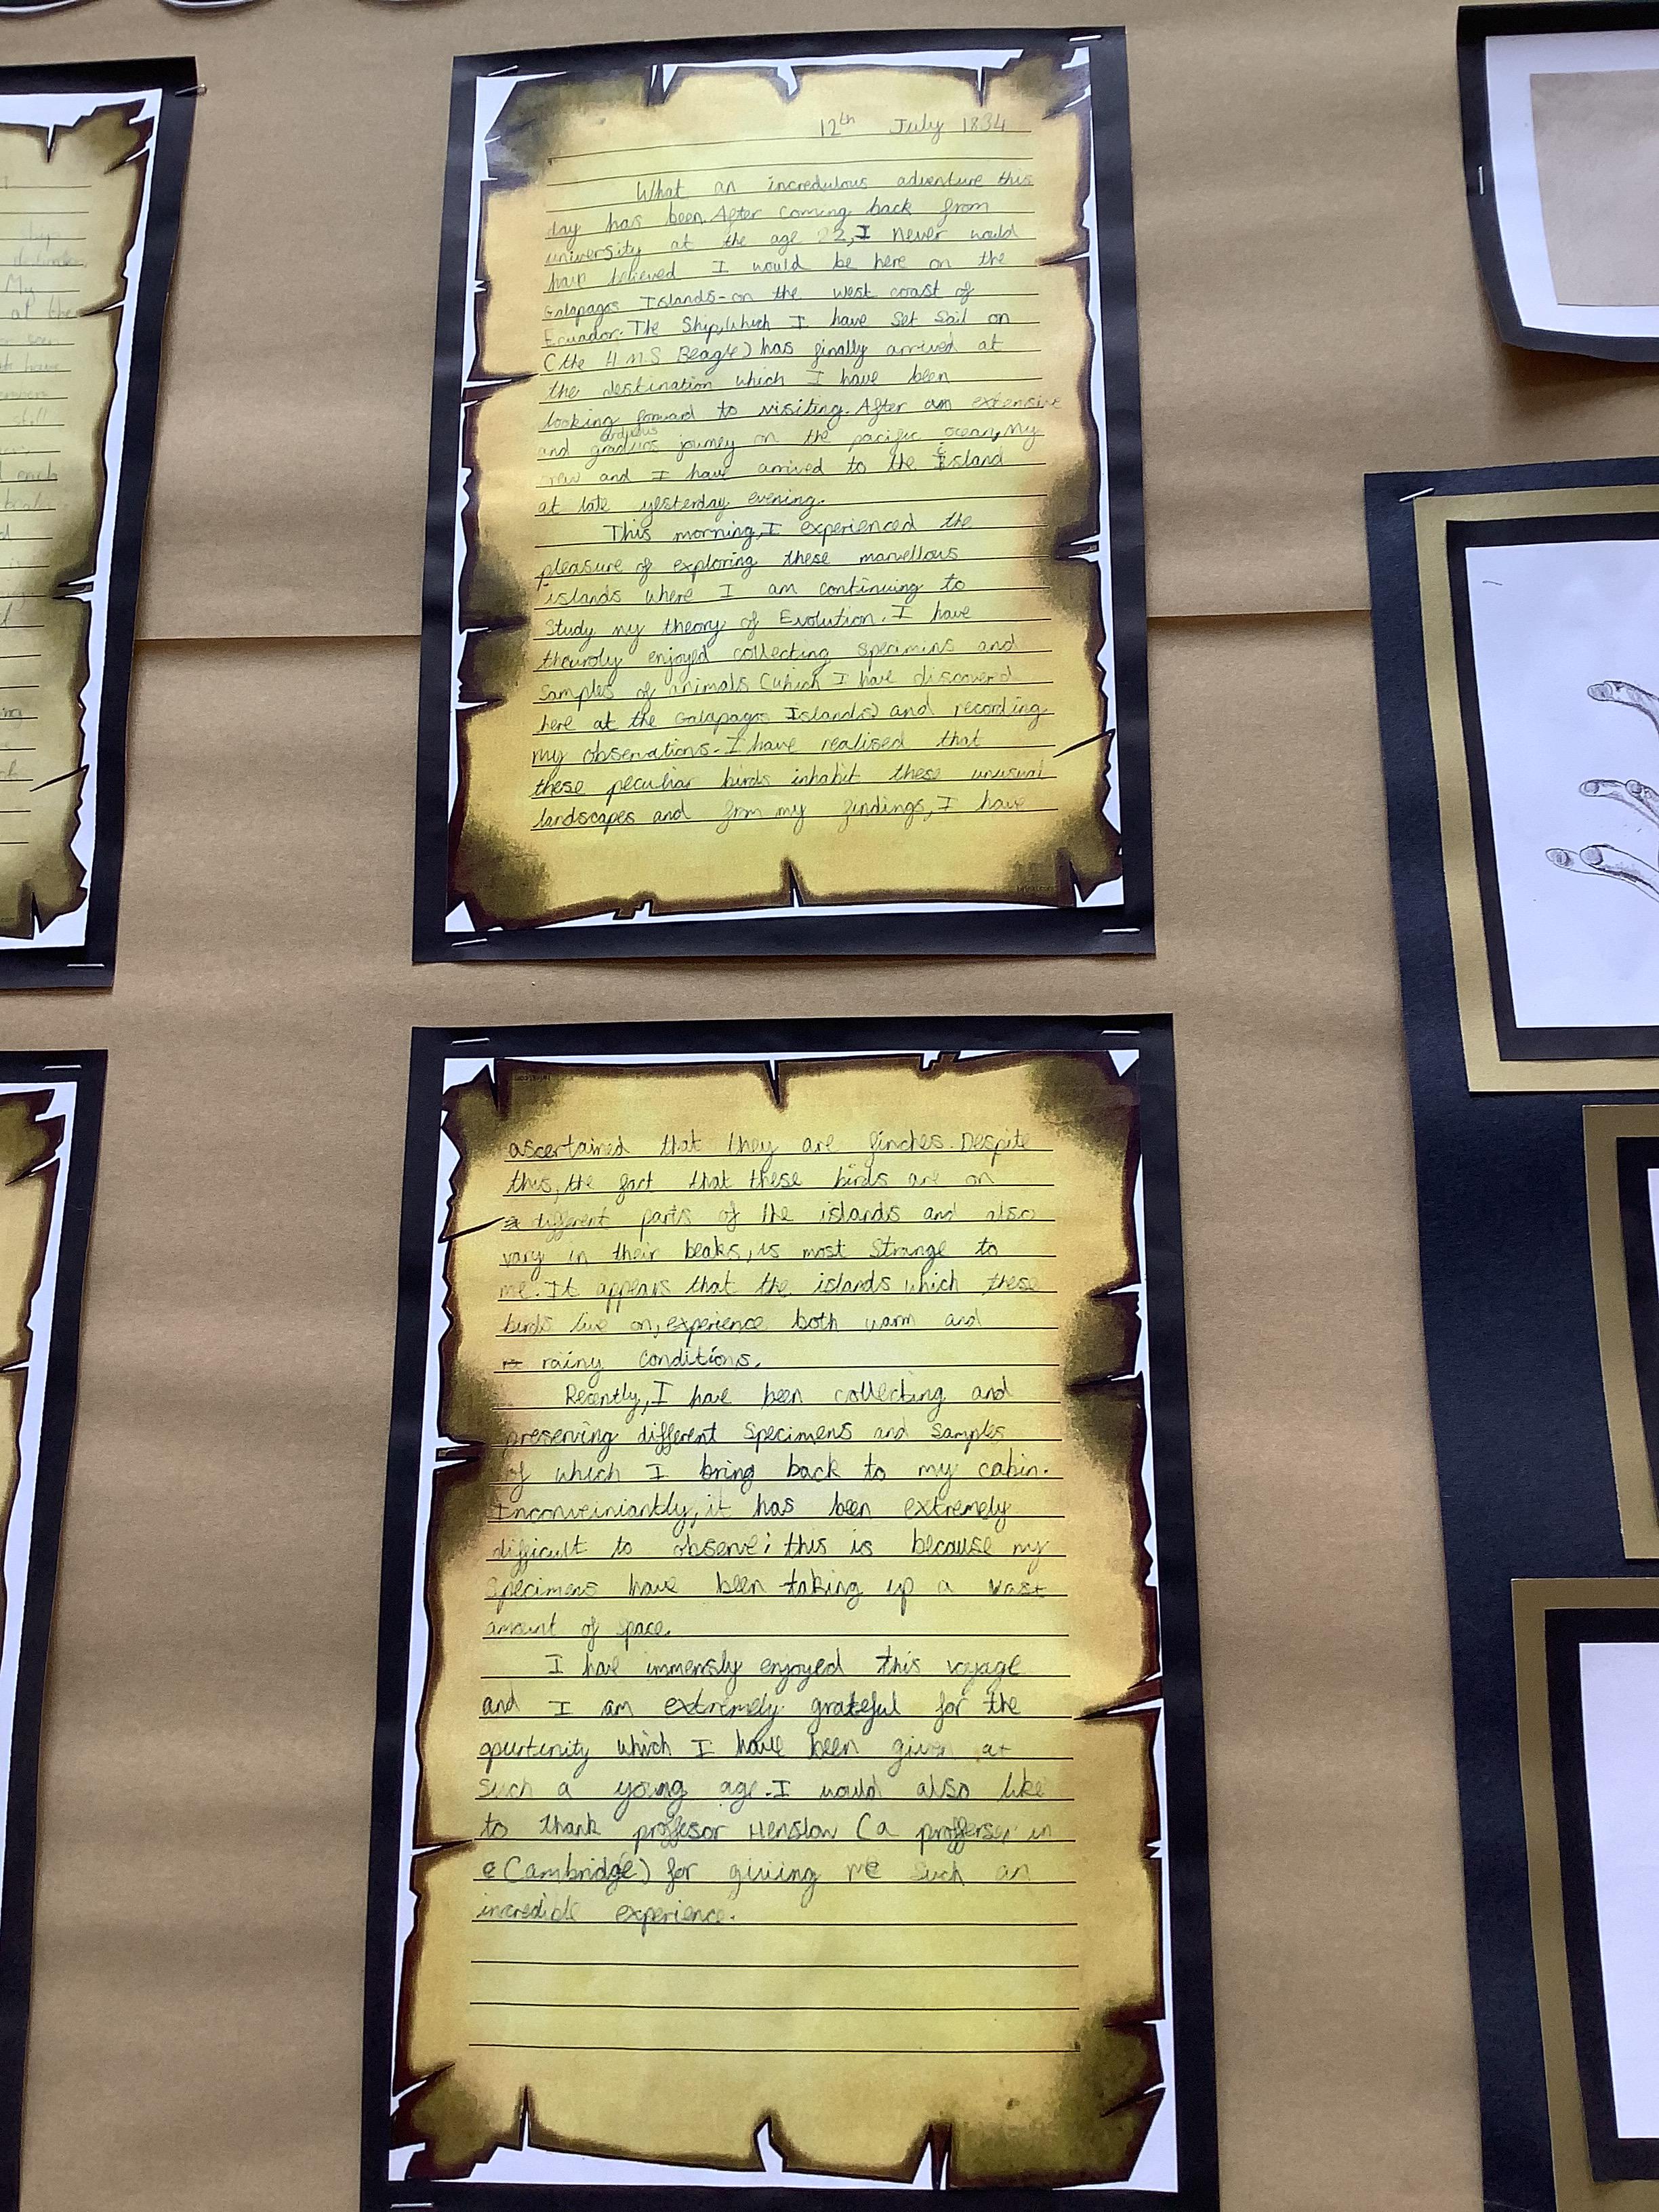 12th July 1834
What an incredulous adventure this
day has been. After coming back from
university at the age 22, I never would
have believed I would be here on the
Galapagos Islands - on the west coast of
Ecuador. The Ship, which I have set sail on
(the H.M.S Beagle) has finally arrived at
the destination which I have been
looking forward to visiting. After an extensive
arduous
and journey on the pacific ocean, my
crew and I have arrived to the island
at late yesterday evening.
This morning, I experienced the
pleasure of exploring these marvellous
islands where I am continuing to
Study my theory of Evolution. I have
thouroly enjoyed collecting specimins and
Samples of animals (which I have discovered
here at the Galapagos Islands) and recording
my observations. I have realised that
these peculiar birds inhabit these unusual
landscapes and from my findings, I have
ascertained that they are finches. Despite
this, the fact that these birds are on
different parts of the islands and also
vary in their beaks, is most Strange to
me. It appears that the islands which these
birds live on, experience both warm and
rainy conditions.
Recently, I have been collecting and
preserving different Specimens and Samples
of which I bring back to my cabin.
Inconveiniantly, it has been extremely
difficult to observe; this is because my
specimens have been taking up a vast
amount of space.
I have immensly enjoyed this voyage
and I am extremely grateful for the
opurtunity which I have been given at
such a young age. I would also like
to thank proffesor Henslow (a profferser in
(Cambridge) for giving me such an
incredible experience.
My
at the
still